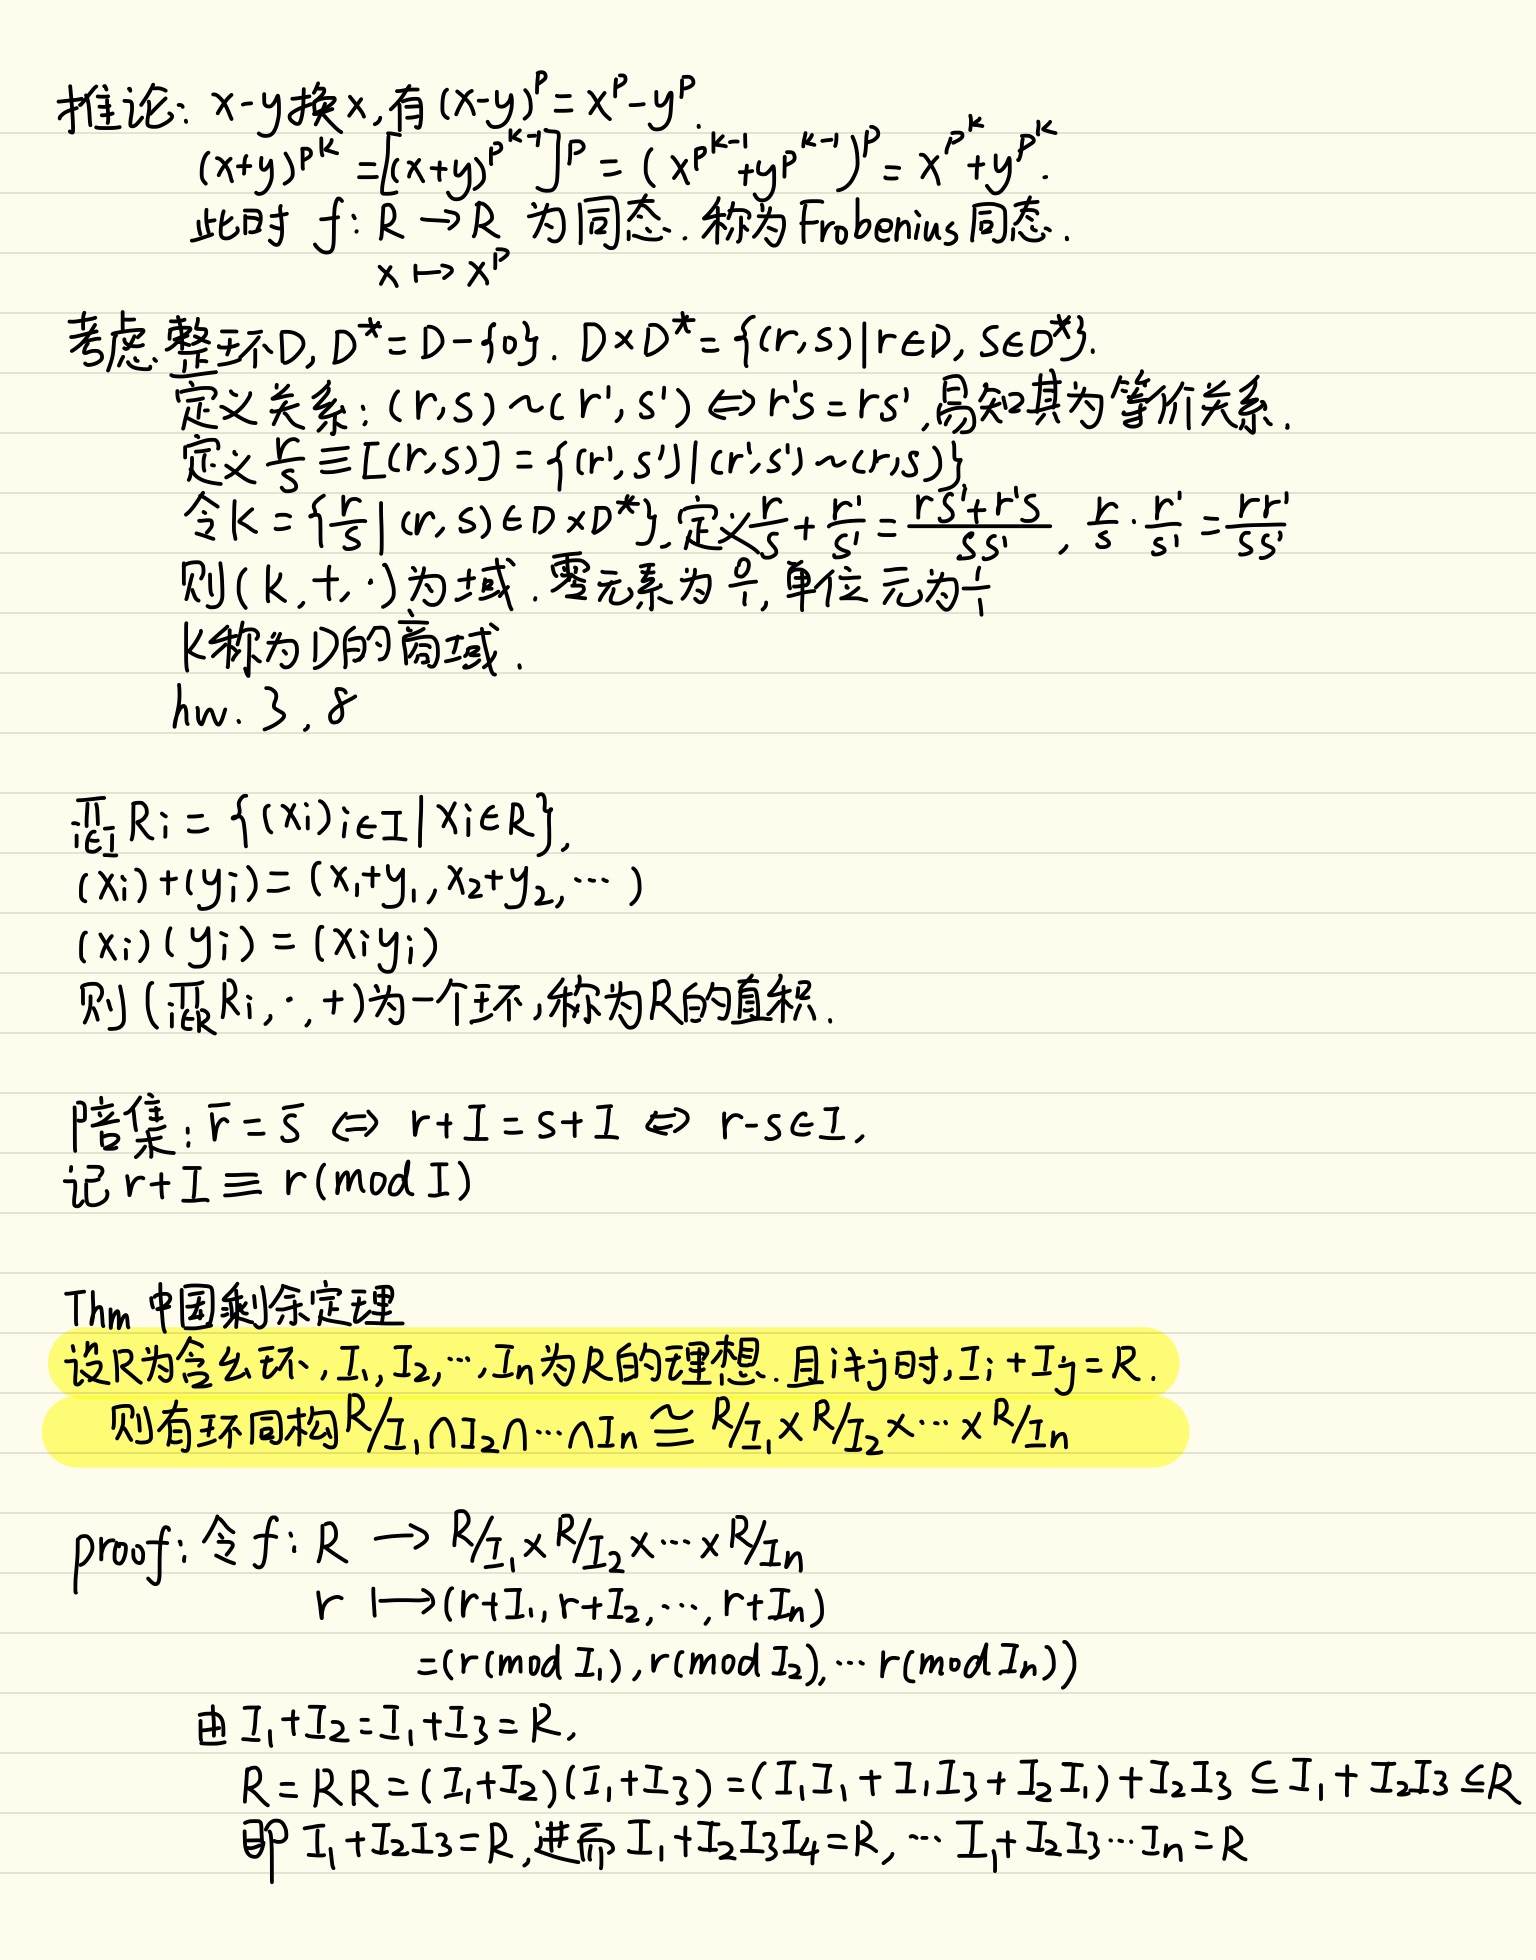 推论: x-y换x,有 (x-y)^p = x^p - y^p.
(x+y)^{p^k} = [(x+y)^{p^{k-1}}]^p = (x^{p^{k-1}}+y^{p^{k-1}})^p = x^{p^k}+y^{p^k}.
此时 f: R → R 为同态. 称为Frobenius同态.
x ↦ x^p
考虑整环D, D* = D-{0}. D×D* = {(r,s)|r∈D, s∈D*}.
定义关系: (r,s)~(r',s') ⇔ r's = rs', 易知其为等价关系.
定义 r/s ≡ [(r,s)] = {(r',s')|(r',s')~(r,s)}
令K = {r/s | (r,s)∈D×D*}, 定义 r/s + r'/s' = (rs'+r's)/(ss'), r/s · r'/s' = rr'/ss'
则(K,+,·)为域. 零元素为 0/1, 单位元为 1/1
K称为D的商域.
hw. 3, 8
∏_{i∈I} Ri = {(xi)_{i∈I} | xi∈R},
(xi)+(yi) = (x₁+y₁, x₂+y₂, ⋯)
(xi)(yi) = (xiyi)
则 (∏_{i∈R} Ri, ·, +)为一个环,称为R的直积.
陪集: r̄ = s̄ ⇔ r+I = s+I ⇔ r-s∈I,
记 r+I ≡ r(mod I)
Thm 中国剩余定理
设R为含幺环, I₁, I₂, ⋯, In为R的理想. 且i≠j时, Ii+Ij = R.
则有环同构 R/I₁∩I₂∩⋯∩In ≅ R/I₁ × R/I₂ × ⋯ × R/In
proof: 令 f: R → R/I₁ × R/I₂ × ⋯ × R/In
r ↦ (r+I₁, r+I₂, ⋯, r+In)
=(r(mod I₁), r(mod I₂), ⋯ r(mod In))
由 I₁+I₂ = I₁+I₃ = R,
R = RR = (I₁+I₂)(I₁+I₃) = (I₁I₁+I₁I₃+I₂I₁)+I₂I₃ ⊆ I₁+I₂I₃ ⊆ R
即 I₁+I₂I₃ = R, 进而 I₁+I₂I₃I₄ = R, ⋯ I₁+I₂I₃⋯In = R